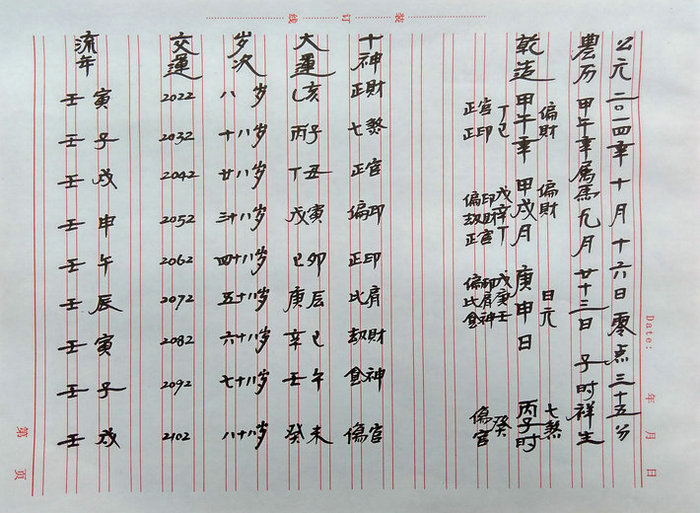 装 订 线
Date: 年 月 日
公元二〇一四年十月十六日零点三十五分
農历甲午年属馬九月廿十三日子时祥生
偏財 偏財 日元 七煞
乾造 甲午年 甲戌月 庚申日 丙子时
丁己 戊辛丁 戊庚壬 癸
正官 正印 偏印 劫財 正官 偏印 比肩 食神 傷官
十神 正財 七煞 正官 偏印 正印 比肩 劫財 食神 傷官
大運 乙亥 丙子 丁丑 戊寅 己卯 庚辰 辛巳 壬午 癸未
岁次 八岁 十八岁 廿八岁 三十八岁 四十八岁 五十八岁 六十八岁 七十八岁 八十八岁
交運 2022 2032 2042 2052 2062 2072 2082 2092 2102
流年 壬寅 壬子 壬戌 壬申 壬午 壬辰 壬寅 壬子 壬戌
第 页